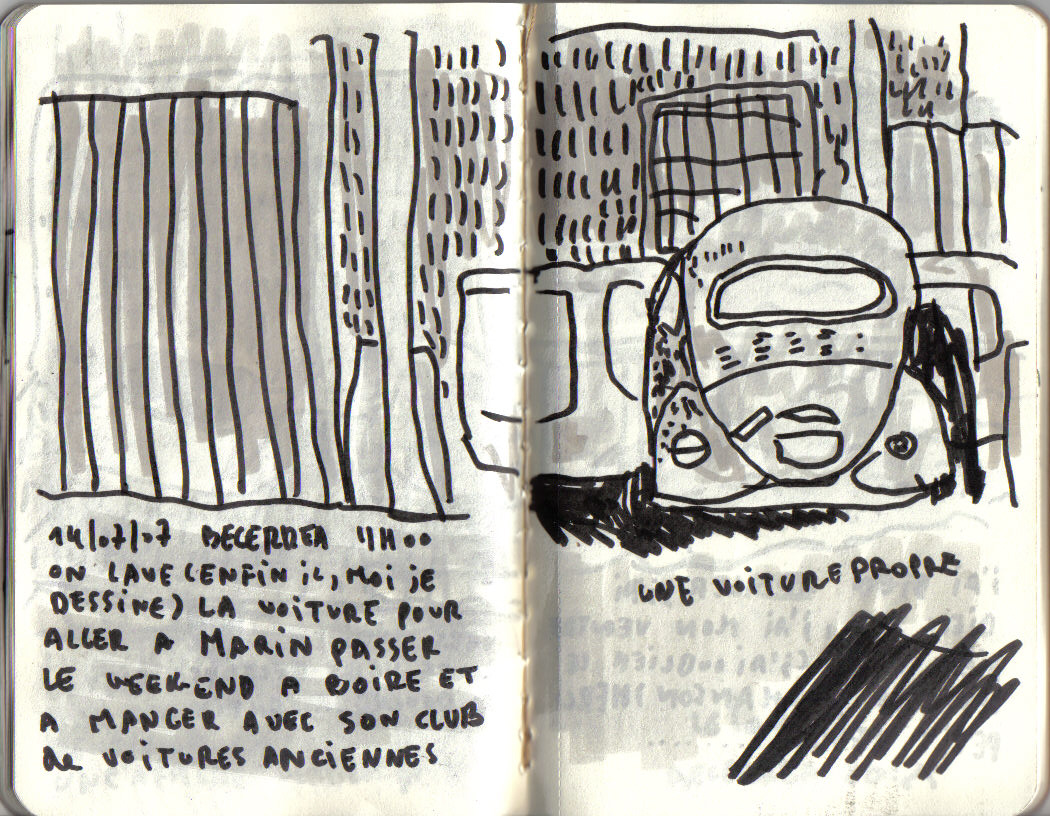 14/07/07 BECERREA 11H00
ON LAVE (ENFIN iL, MOi jE
DESSINE) LA VOITURE POUR
ALLER A MARIN PASSER
LE WEEKEND A BOIRE ET
A MANGER AVEC SON CLUB
de VOITURES ANCIENNES
UNE VOITURE PROPRE